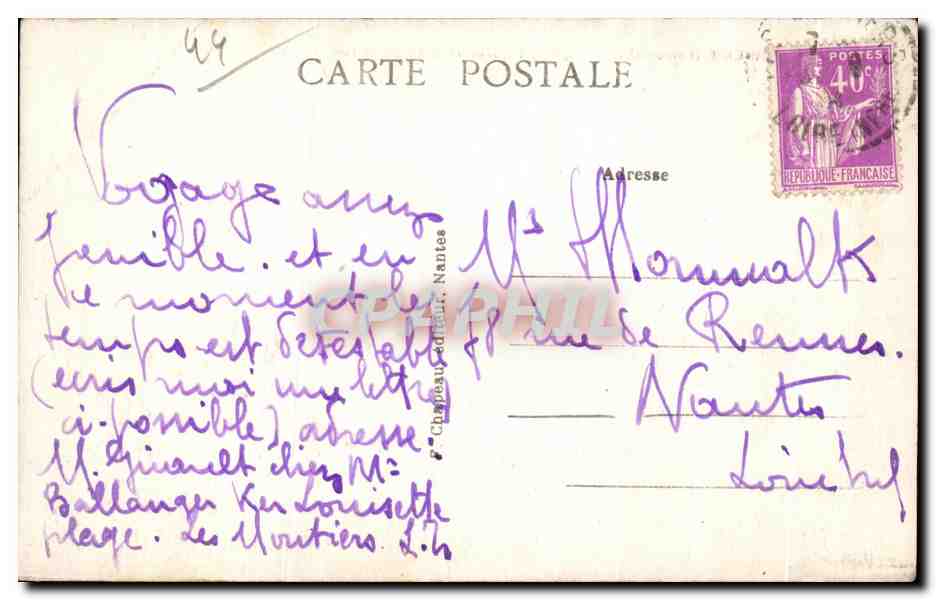 44
CARTE POSTALE
POSTES
40c
RÉPUBLIQUE-FRANÇAISE
LOIRE INFRE
Adresse
F. Chapeau, éditeur, Nantes
CPARHIL
Voyage assez
penible. et en
ce moment le
temps est détestable
(ecris moi une lettre
si possible) adresse
M. Girault chez Mr
Ballanger Ker Louisette
plage. Les Moutiers. L. In
Mr
78 rue de Rennes.
Nantes
Loire Inf